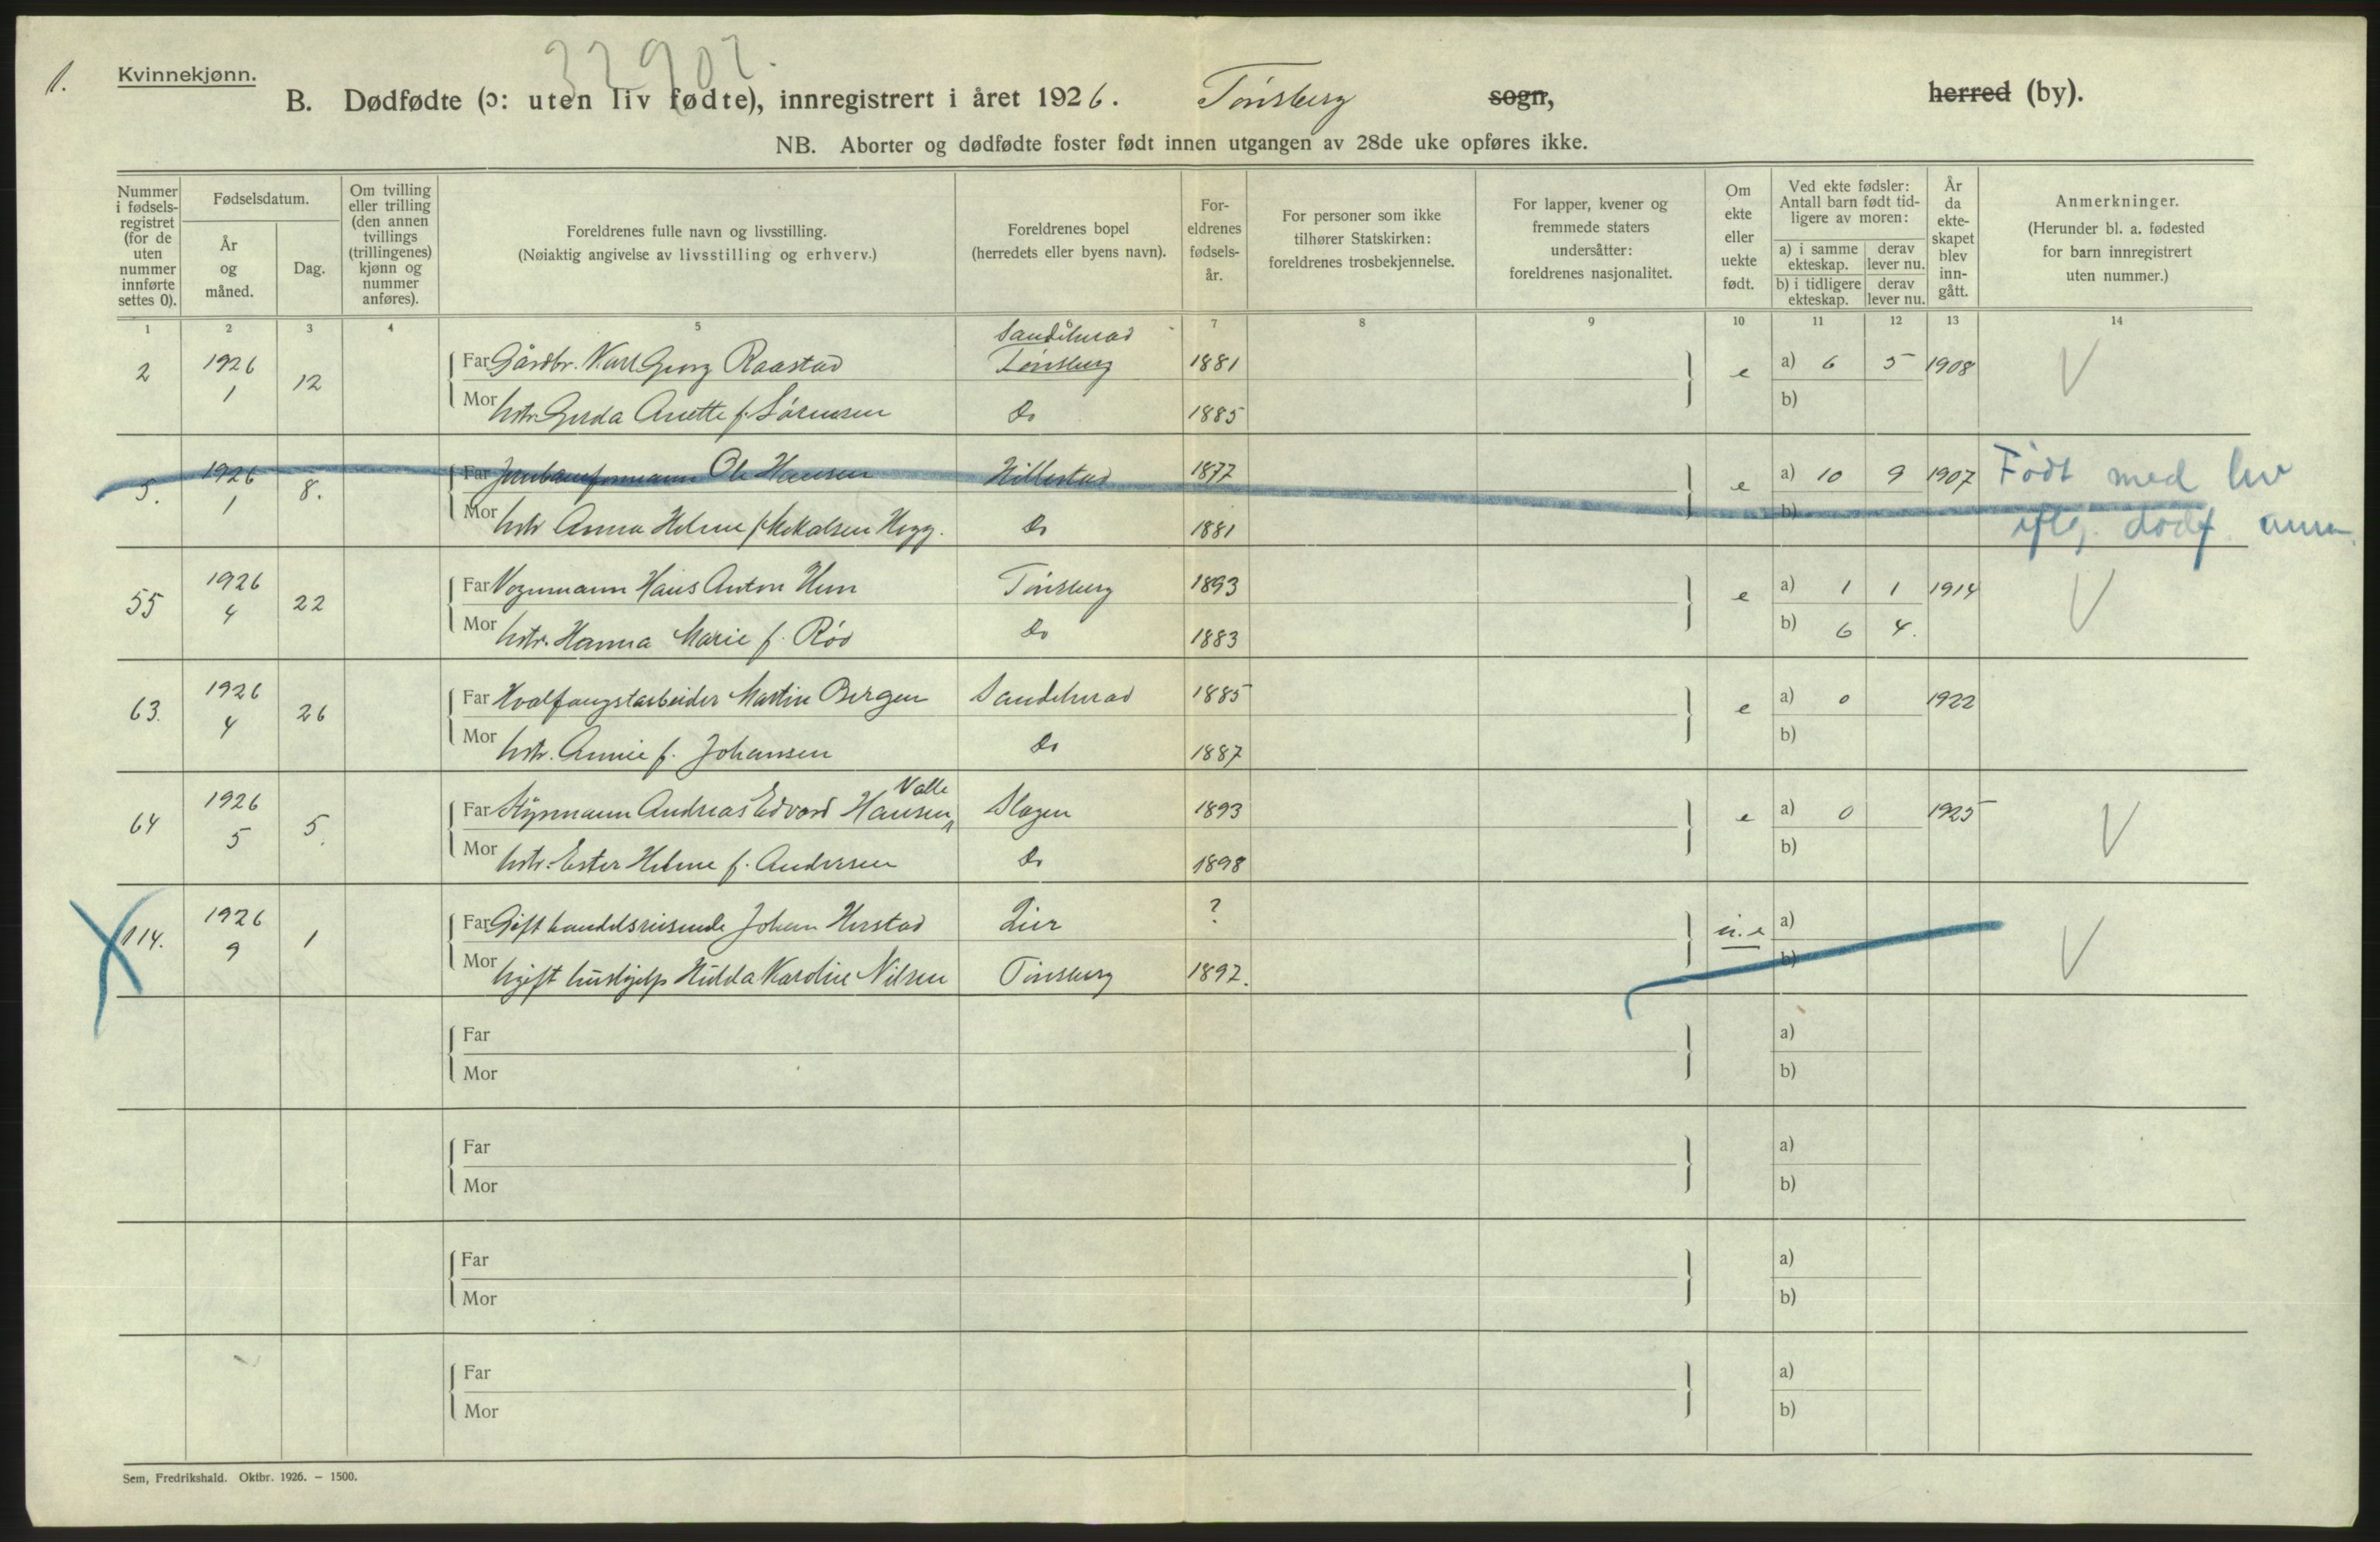 1.
Kvinnekjønn.
32902.
B. Dødfødte (ɔ: uten liv fødte), innregistrert i året 1926. Tønsberg sogn, herred (by).
NB. Aborter og dødfødte foster født innen utgangen av 28de uke opføres ikke.
Nummer i fødsels-registret (for de uten nummer innførte settes 0).
Fødselsdatum.
År og måned.
Dag.
Om tvilling eller trilling (den annen tvillings (trillingenes) kjønn og nummer anføres).
Foreldrenes fulle navn og livsstilling.
(Nøiaktig angivelse av livsstilling og erhverv.)
Foreldrenes bopel
(herredets eller byens navn).
For-eldrenes fødsels-år.
For personer som ikke tilhører Statskirken: foreldrenes trosbekjennelse.
For lapper, kvener og fremmede staters undersåtter: foreldrenes nasjonalitet.
Om ekte eller uekte født.
Ved ekte fødsler: Antall barn født tid-ligere av moren:
a) i samme ekteskap. derav lever nu.
b) i tidligere ekteskap. derav lever nu.
År da ekte-skapet blev inn-gått.
Anmerkninger.
(Herunder bl. a. fødested for barn innregistrert uten nummer.)
1 2 3 4 5 6 7 8 9 10 11 12 13 14
Sandeherad
2 1926 1 12 Far Gårdbr. Karl Georg Raastad Tønsberg 1881 e a) 6 5 1908 V
Mor hstr. Gerda Anette f. Sørensen Do 1885 b)
5. 1926 1 8. Far Jernbaneformann Ole Hansen Hillestad 1877 e a) 10 9 1907 Født med liv
Mor hstr Anna Helene f. Mikalsen Hegg. Do 1881 b) iflg. dødf. anm.
55 1926 4 22 Far Vognmann Hans Anton Hem Tønsberg 1893 e a) 1 1 1914 V
Mor hstr. Hanna Marie f. Rød Do 1883 b) 6 4.
63. 1926 4 26 Far Hvalfangstarbeider Martin Bergen Sandeherad 1885 e a) 0 1922
Mor hstr. Annie f. Johansen Do 1887 b)
Valle
64 1926 5 5. Far Styrmann Andreas Edvard Hansen Slagen 1893 e a) 0 1925 V
Mor hstr. Ester Helene f. Andersen Do 1898 b)
114. 1926 9 1 Far Gift handelsreisende Johan Herstad Lier ? u. e a) V
Mor Ugift hushjelp Hilda Karoline Nilsen Tønsberg 1892. b)
Far a)
Mor b)
Far a)
Mor b)
Far a)
Mor b)
Far a)
Mor b)
Sem, Fredrikshald. Oktbr. 1926. – 1500.